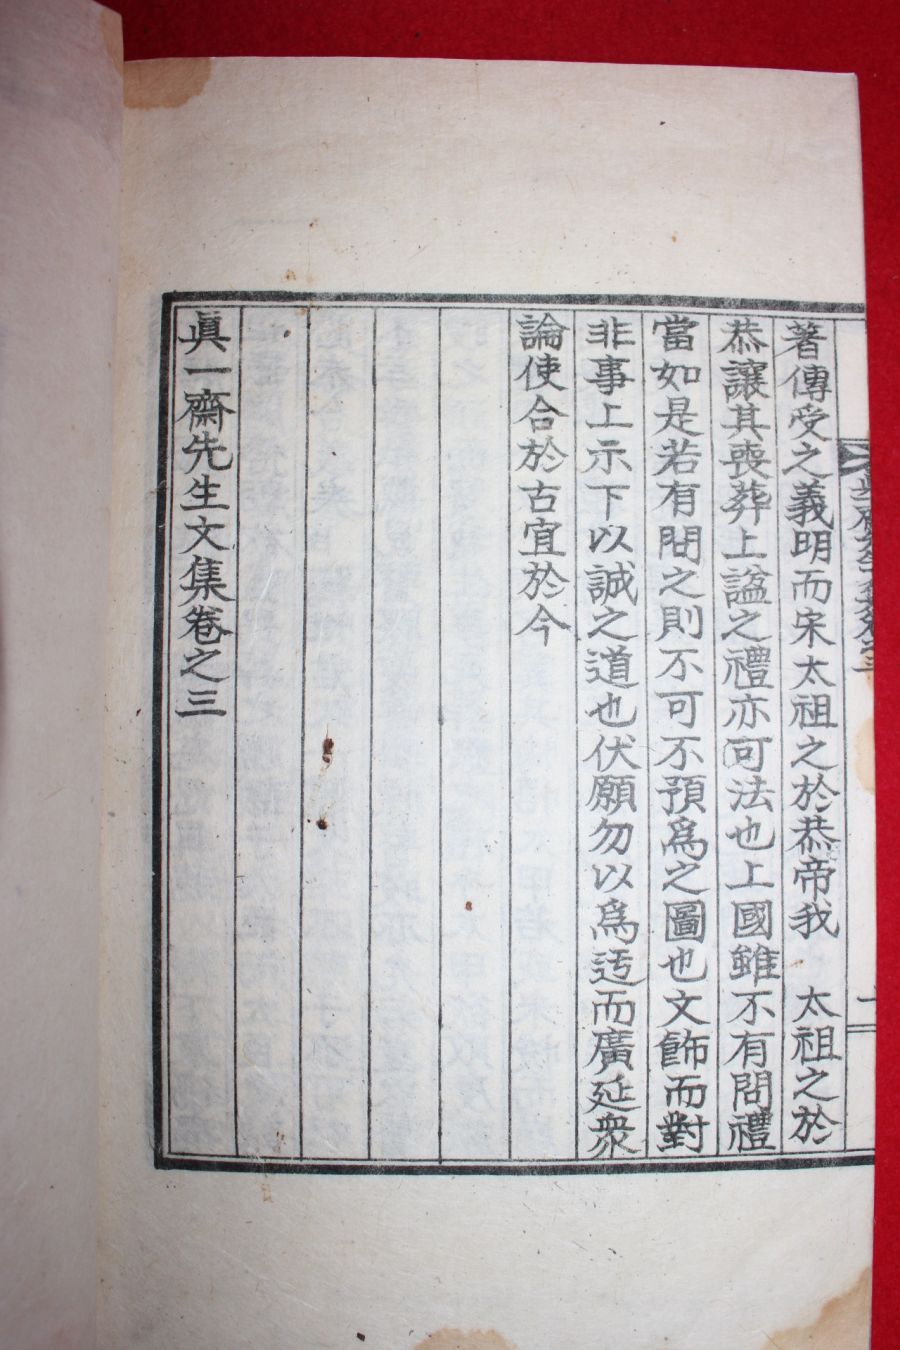 著傳受之義明而宋太祖之於恭帝我　太祖之於
恭讓其喪葬上諡之禮亦可法也上國雖不有問禮
當如是若有問之則不可不預爲之圖也文飾而對
非事上示下以誠之道也伏願勿以爲迃而廣延衆
論使合於古宜於今
眞一齋先生文集卷之三